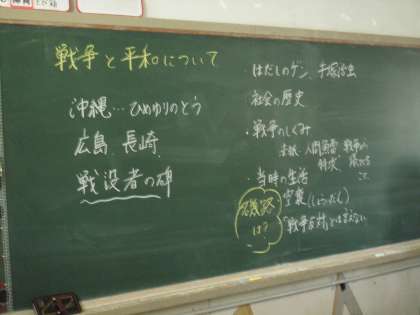 戦争と平和について
沖縄…ひめゆりのとう
広島、長崎
戦没者の碑
はだしのゲン、手塚治虫
社会の歴史
・戦争のしくみ
赤紙、人間魚雷、戦争の
特攻
こと
・当時の生活
空襲
「戦争反対」とは言えない
磯路
は?